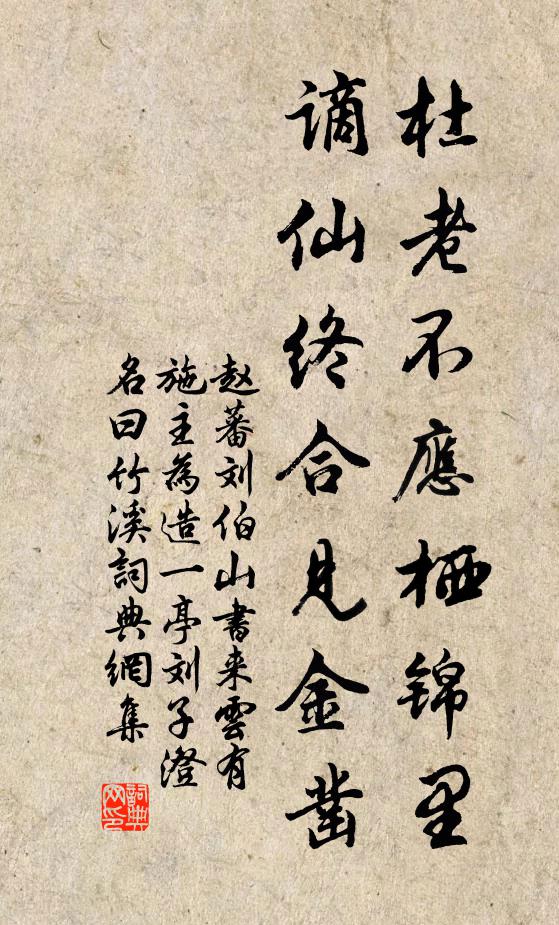 杜老不應栖锦里
谪仙终合見金凿
赵蕃刘伯山書来雲有
施主為造一亭刘子澄
名曰竹溪詞典網集
詞典
网印